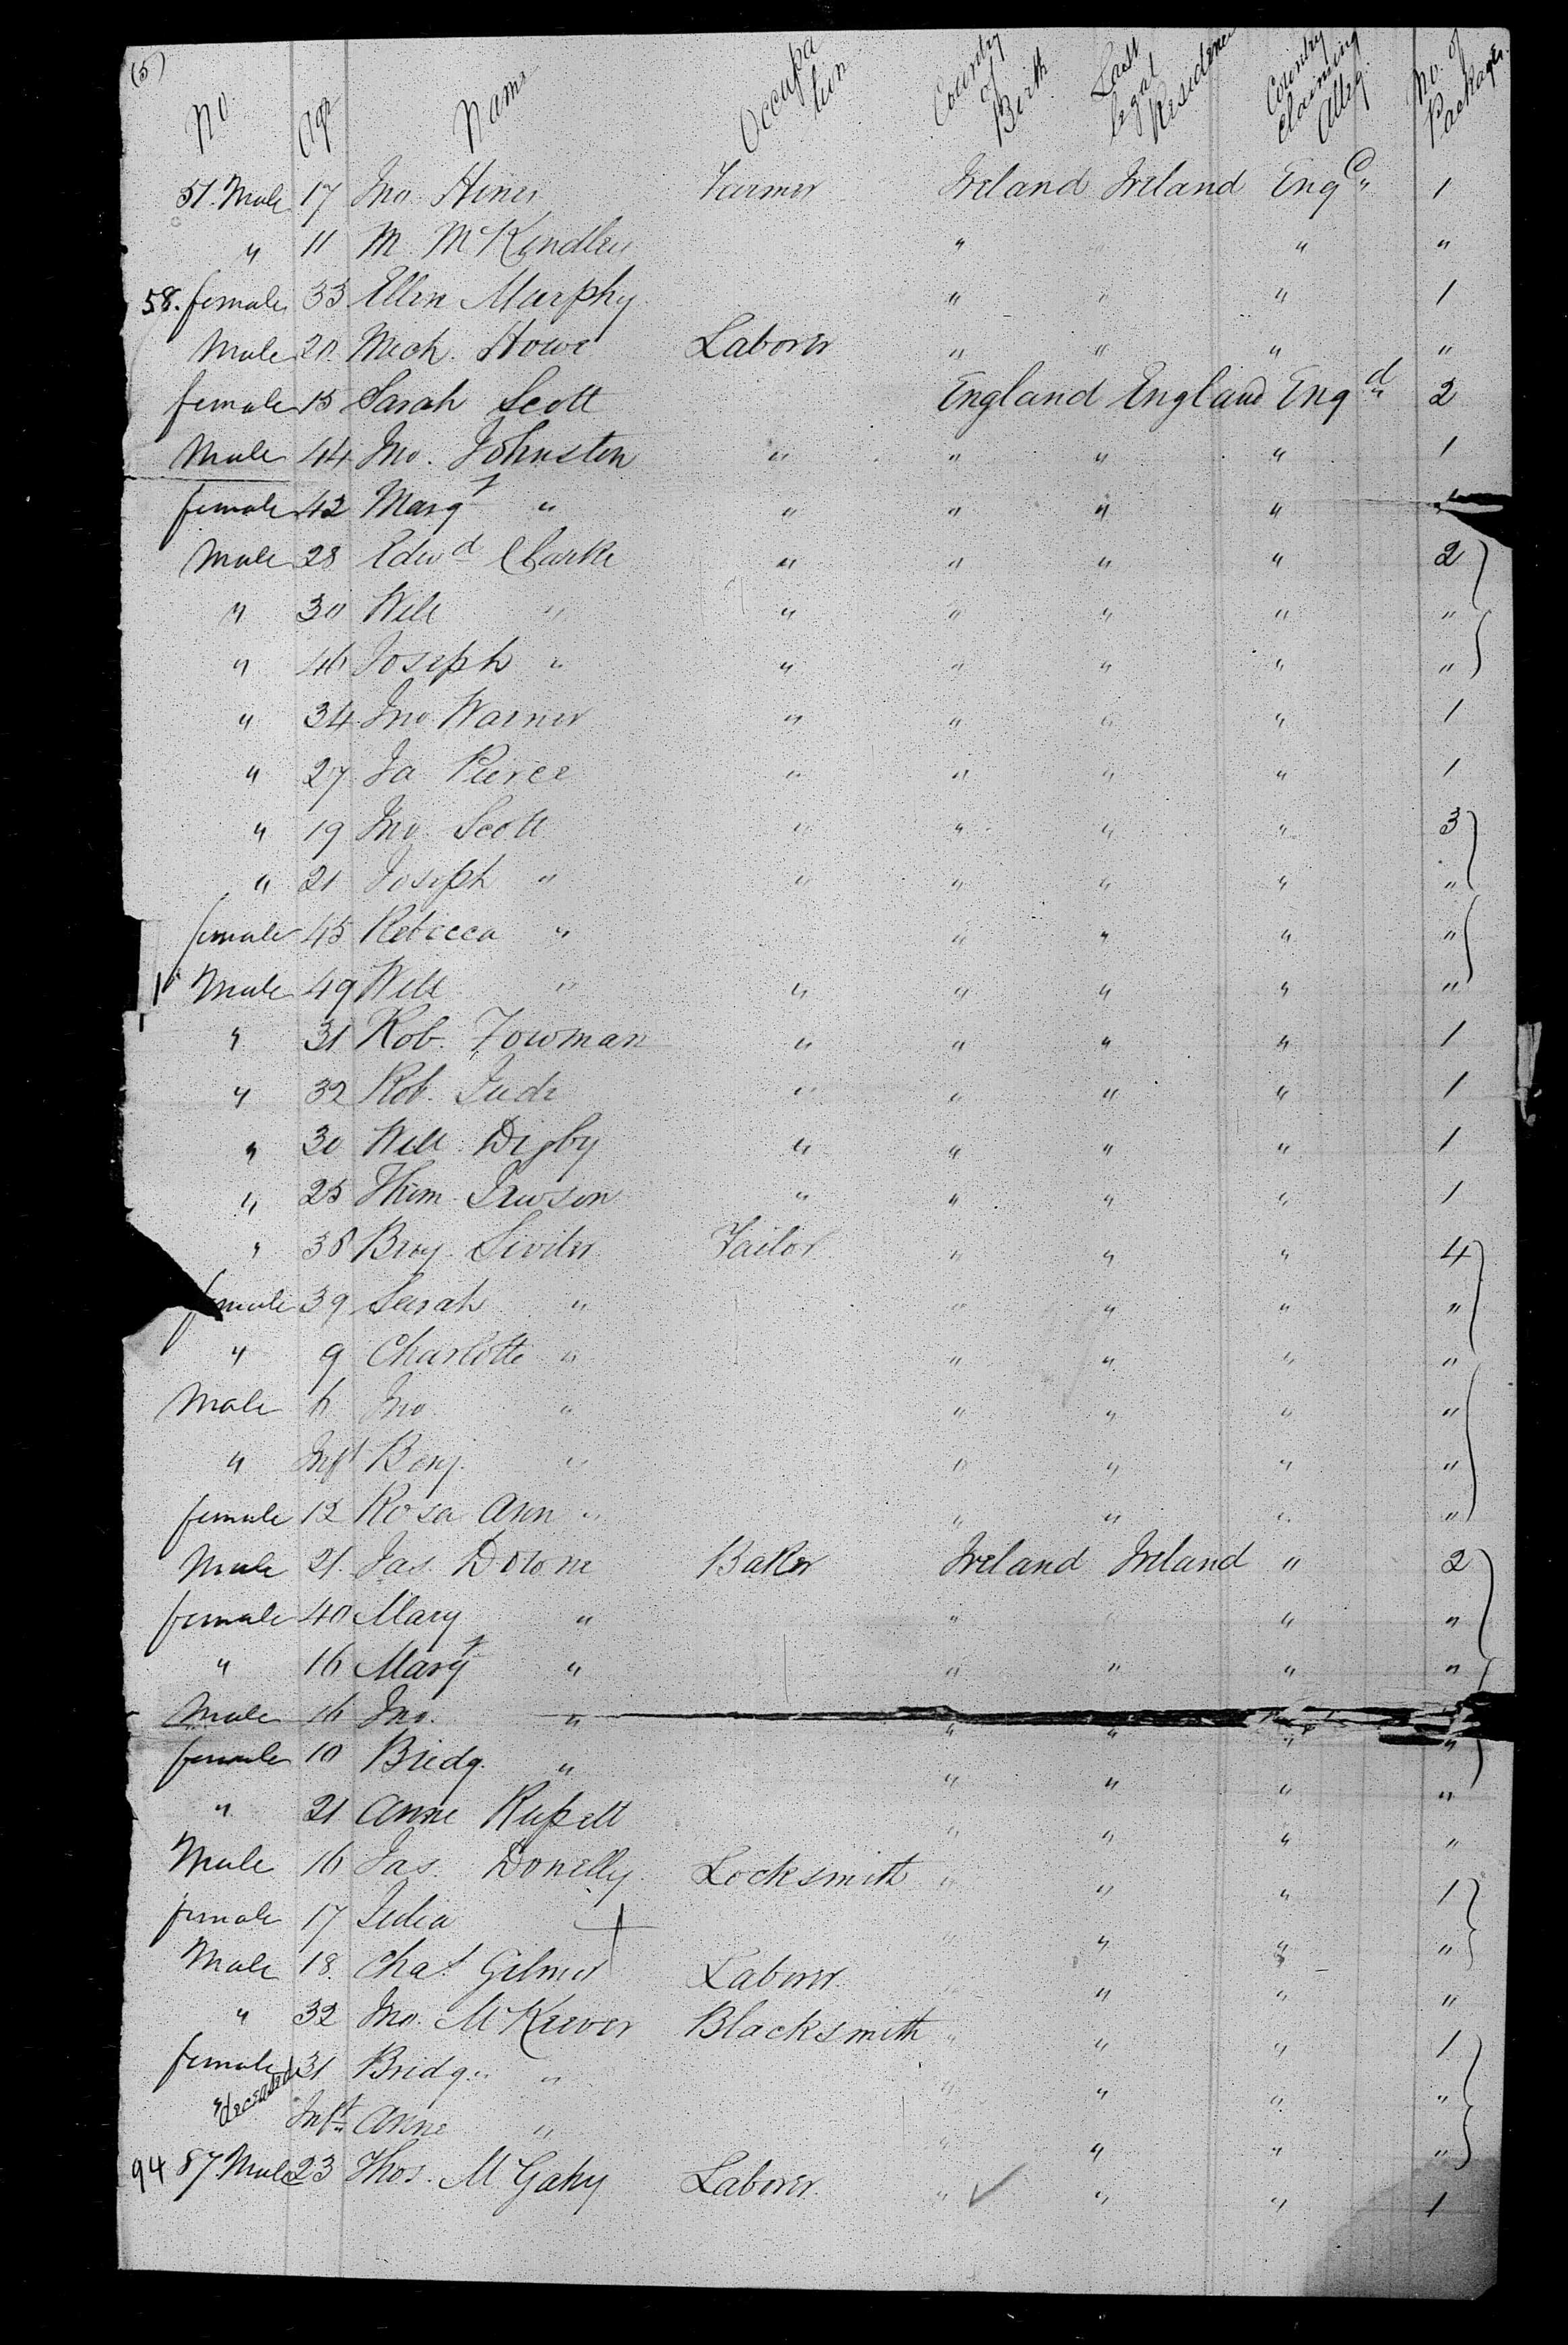 (5)
No Age Name Occupation Country of Birth Last legal Residence Country claiming Alleg. No. of Packages.
51. Male 17 Jno. Hines Farmer Ireland Ireland Engd " 1
" 11 M. McKindley " " "
58. female 33 Ellen Murphy " " " 1
Male 20 Mich. Howe Laborer " " " "
female 15 Sarah Scott England England Engd " 2
Male 44 Jno. Johnston " " " " 1
female 42 Margt " " " " "
Male 28 Edwd Clarke " " " " 2
" 30 Will " " " " " "
" 46 Joseph " " " " " "
" 34 Jno Warner " " " " 1
" 27 Ja Pierce " " " " 1
" 19 Jno. Scott " " " " 3
" 21 Joseph " " " " " "
female 45 Rebecca " " " " "
Male 49 Will " " " " " "
" 31 Rob. Towman " " " " 1
" 32 Rob. Jude " " " " 1
" 30 Will Digby " " " " 1
" 25 Thom. " " " " 1
" 38 Tailor " " " 4
female 39 Sarah " " " " "
" 9 Charlotte " " " " "
Male 6 Jno " " " " "
" Inft Benj. " " " " "
female 12 Rosa Ann " " " " "
Male 21. Jas. Downe Baker Ireland Ireland " 2
female 40 Mary " " " "
" 16 Margt " " " " "
Male 16 Jno. " " " " "
female 10 Bridg. " " " " "
" 21 Anne " " " "
Male 16 Jas. Donelly Locksmith " " " 1
female 17 Julia " " "
Male 18. Chas. Gilmer Laborer " " "
" 32 Jno. McKeever Blacksmith " " " 1
female 31 Bridg. " " " " "
" deceased Inft Anne " " " " "
94 87. Male 23 Thos. McGahy Laborer " " " 1